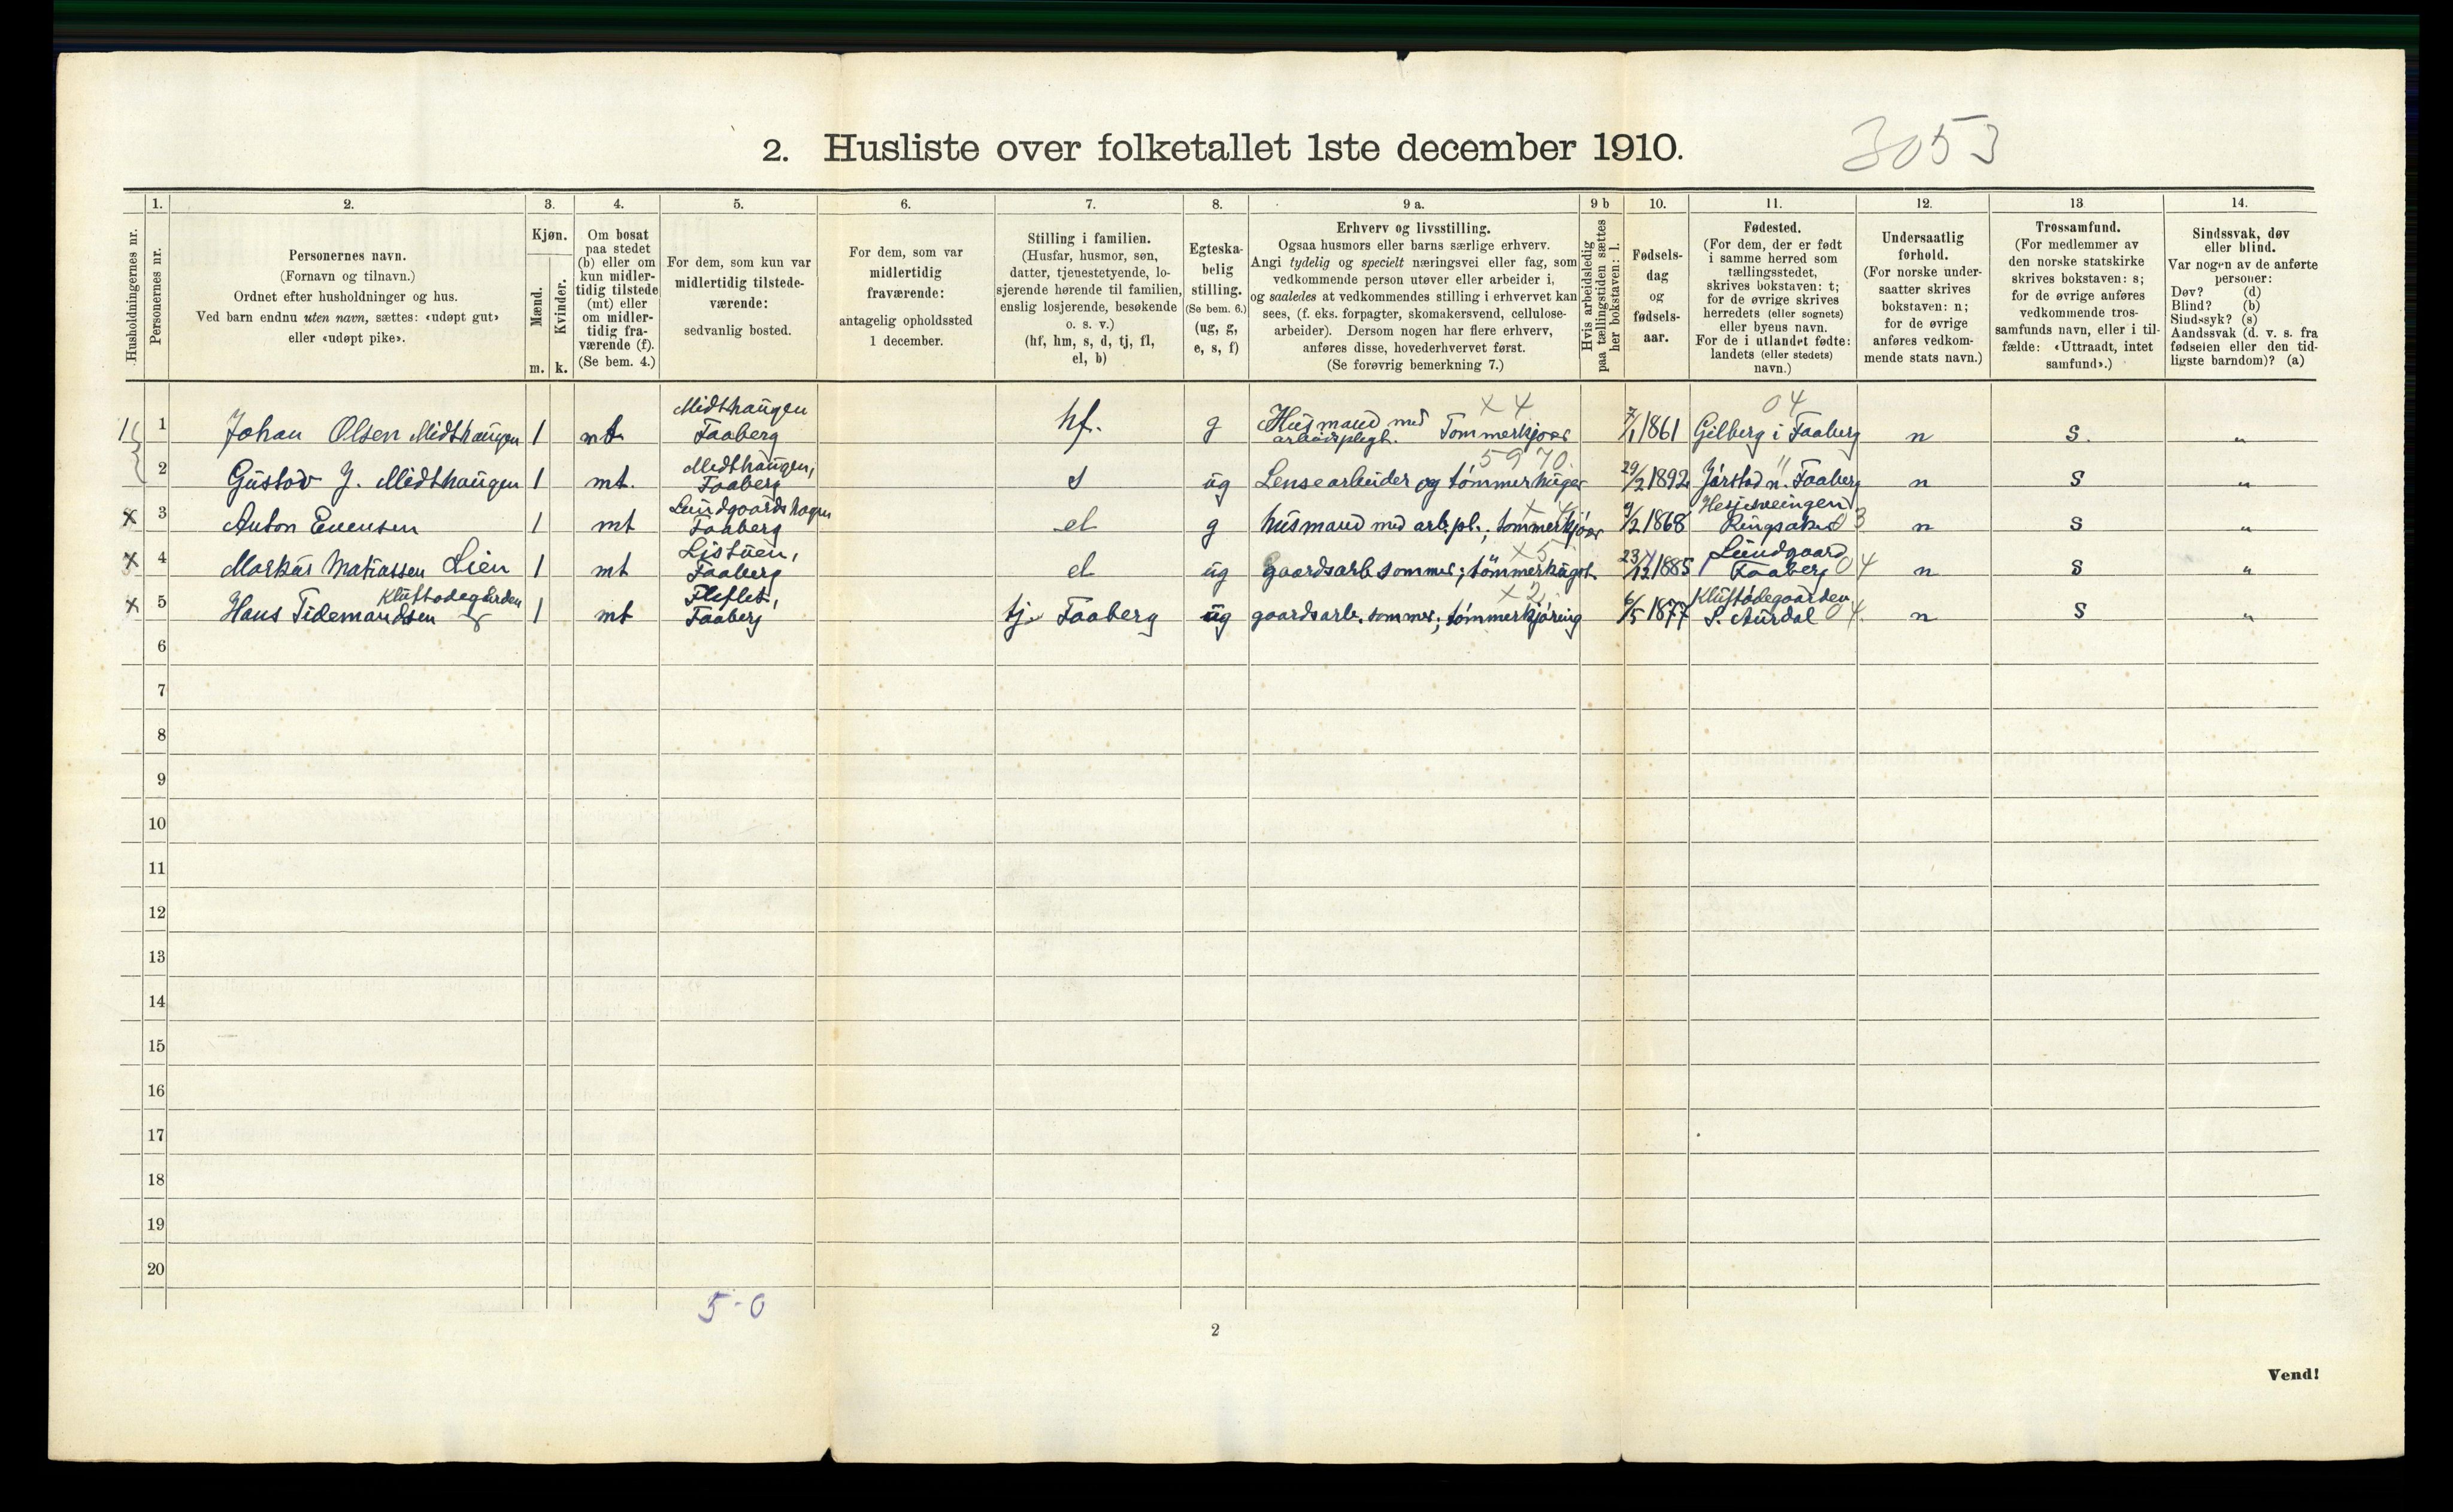 2. Husliste over folketallet 1ste december 1910.
3053
Husholdningernes nr.
1.
Personernes nr.
2.
Personernes navn.
(Fornavn og tilnavn.)
Ordnet efter husholdninger og hus.
Ved barn endnu uten navn, sættes: «udøpt gut»
eller «udøpt pike».
3.
Kjøn.
Mænd.
Kvinder.
m. k.
4.
Om bosat
paa stedet
(b) eller om
kun midler-
tidig tilstede
(mt) eller
om midler-
tidig fra-
værende (f).
(Se bem. 4.)
5.
For dem, som kun var
midlertidig tilstede-
værende:
sedvanlig bosted.
6.
For dem, som var
midlertidig
fraværende:
antagelig opholdssted
1 december.
7.
Stilling i familien.
(Husfar, husmor, søn,
datter, tjenestetyende, lo-
sjerende hørende til familien,
enslig losjerende, besøkende
o. s. v.)
(hf, hm, s, d, tj, fl,
el, b)
8.
Egteska-
belig
stilling.
(Se bem. 6.)
(ug, g,
e, s, f)
9 a.
Erhverv og livsstilling.
Ogsaa husmors eller barns særlige erhverv.
Angi tydelig og specielt næringsvei eller fag, som
vedkommende person utøver eller arbeider i,
og saaledes at vedkommendes stilling i erhvervet kan
sees, (f. eks. forpagter, skomakersvend, cellulose-
arbeider). Dersom nogen har flere erhverv,
anføres disse, hovederhvervet først.
(Se forøvrig bemerkning 7.)
9 b
Hvis arbeidsledig
paa tællingstiden sættes
her bokstaven: l.
10.
Fødsels-
dag
og
fødsels-
aar.
11.
Fødested.
(For dem, der er født
i samme herred som
tællingsstedet,
skrives bokstaven: t;
for de øvrige skrives
herredets (eller sognets)
eller byens navn.
For de i utlandet fødte:
landets (eller stedets)
navn.)
12.
Undersaatlig
forhold.
(For norske under-
saatter skrives
bokstaven: n;
for de øvrige
anføres vedkom-
mende stats navn.)
13
Trossamfund.
(For medlemmer av
den norske statskirke
skrives bokstaven: s;
for de øvrige anføres
vedkommende tros-
samfunds navn, eller i til-
fælde: «Uttraadt, intet
samfund».)
14.
Sindssvak, døv
eller blind.
Var nogen av de anførte
personer:
Døv? (d)
Blind? (b)
Sindssyk? (s)
Aandssvak (d. v. s. fra
fødselen eller den tid-
ligste barndom)? (a)
1 1 Johan Olsen Midthaugen 1 mt. Midthaugen Faaberg hf. g Husmand med arbeidspligt. Tømmerkjører x 4 7/1 1861 Gilberg i Faaberg 04 n s. "
2 Gustav J. Midthaugen 1 mt. Midthaugen, Faaberg s ug Lensearbeider og tømmerhugger 5970 29/2 1892 Jørstad n. Faaberg " n s "
x 3 Anton Evensen 1 mt Lundgaardshagen Faaberg el g husmand med arb.pl.; tømmerkjører x 4 9/2 1868 Ringsaker 03 n s "
x 4 Markus Matiassen Lien 1 mt Listuen, Faaberg el ug gaardsarb sommer; tømmerhugst. x 5 23/12 1885 Lundgaard Faaberg 04 n s "
x 5 Hans Tidemandsen Kluftødegaarden 1 mt Fleflet, Faaberg tj. Faaberg ug gaardsarb. sommer; tømmerkjøring x 2 6/5 1877 Kluftødegaarden S. Aurdal 04. n s "
6
7
8
9
10
11
12
13
14
15
16
17
18
19
20
5-0
2
Vend!